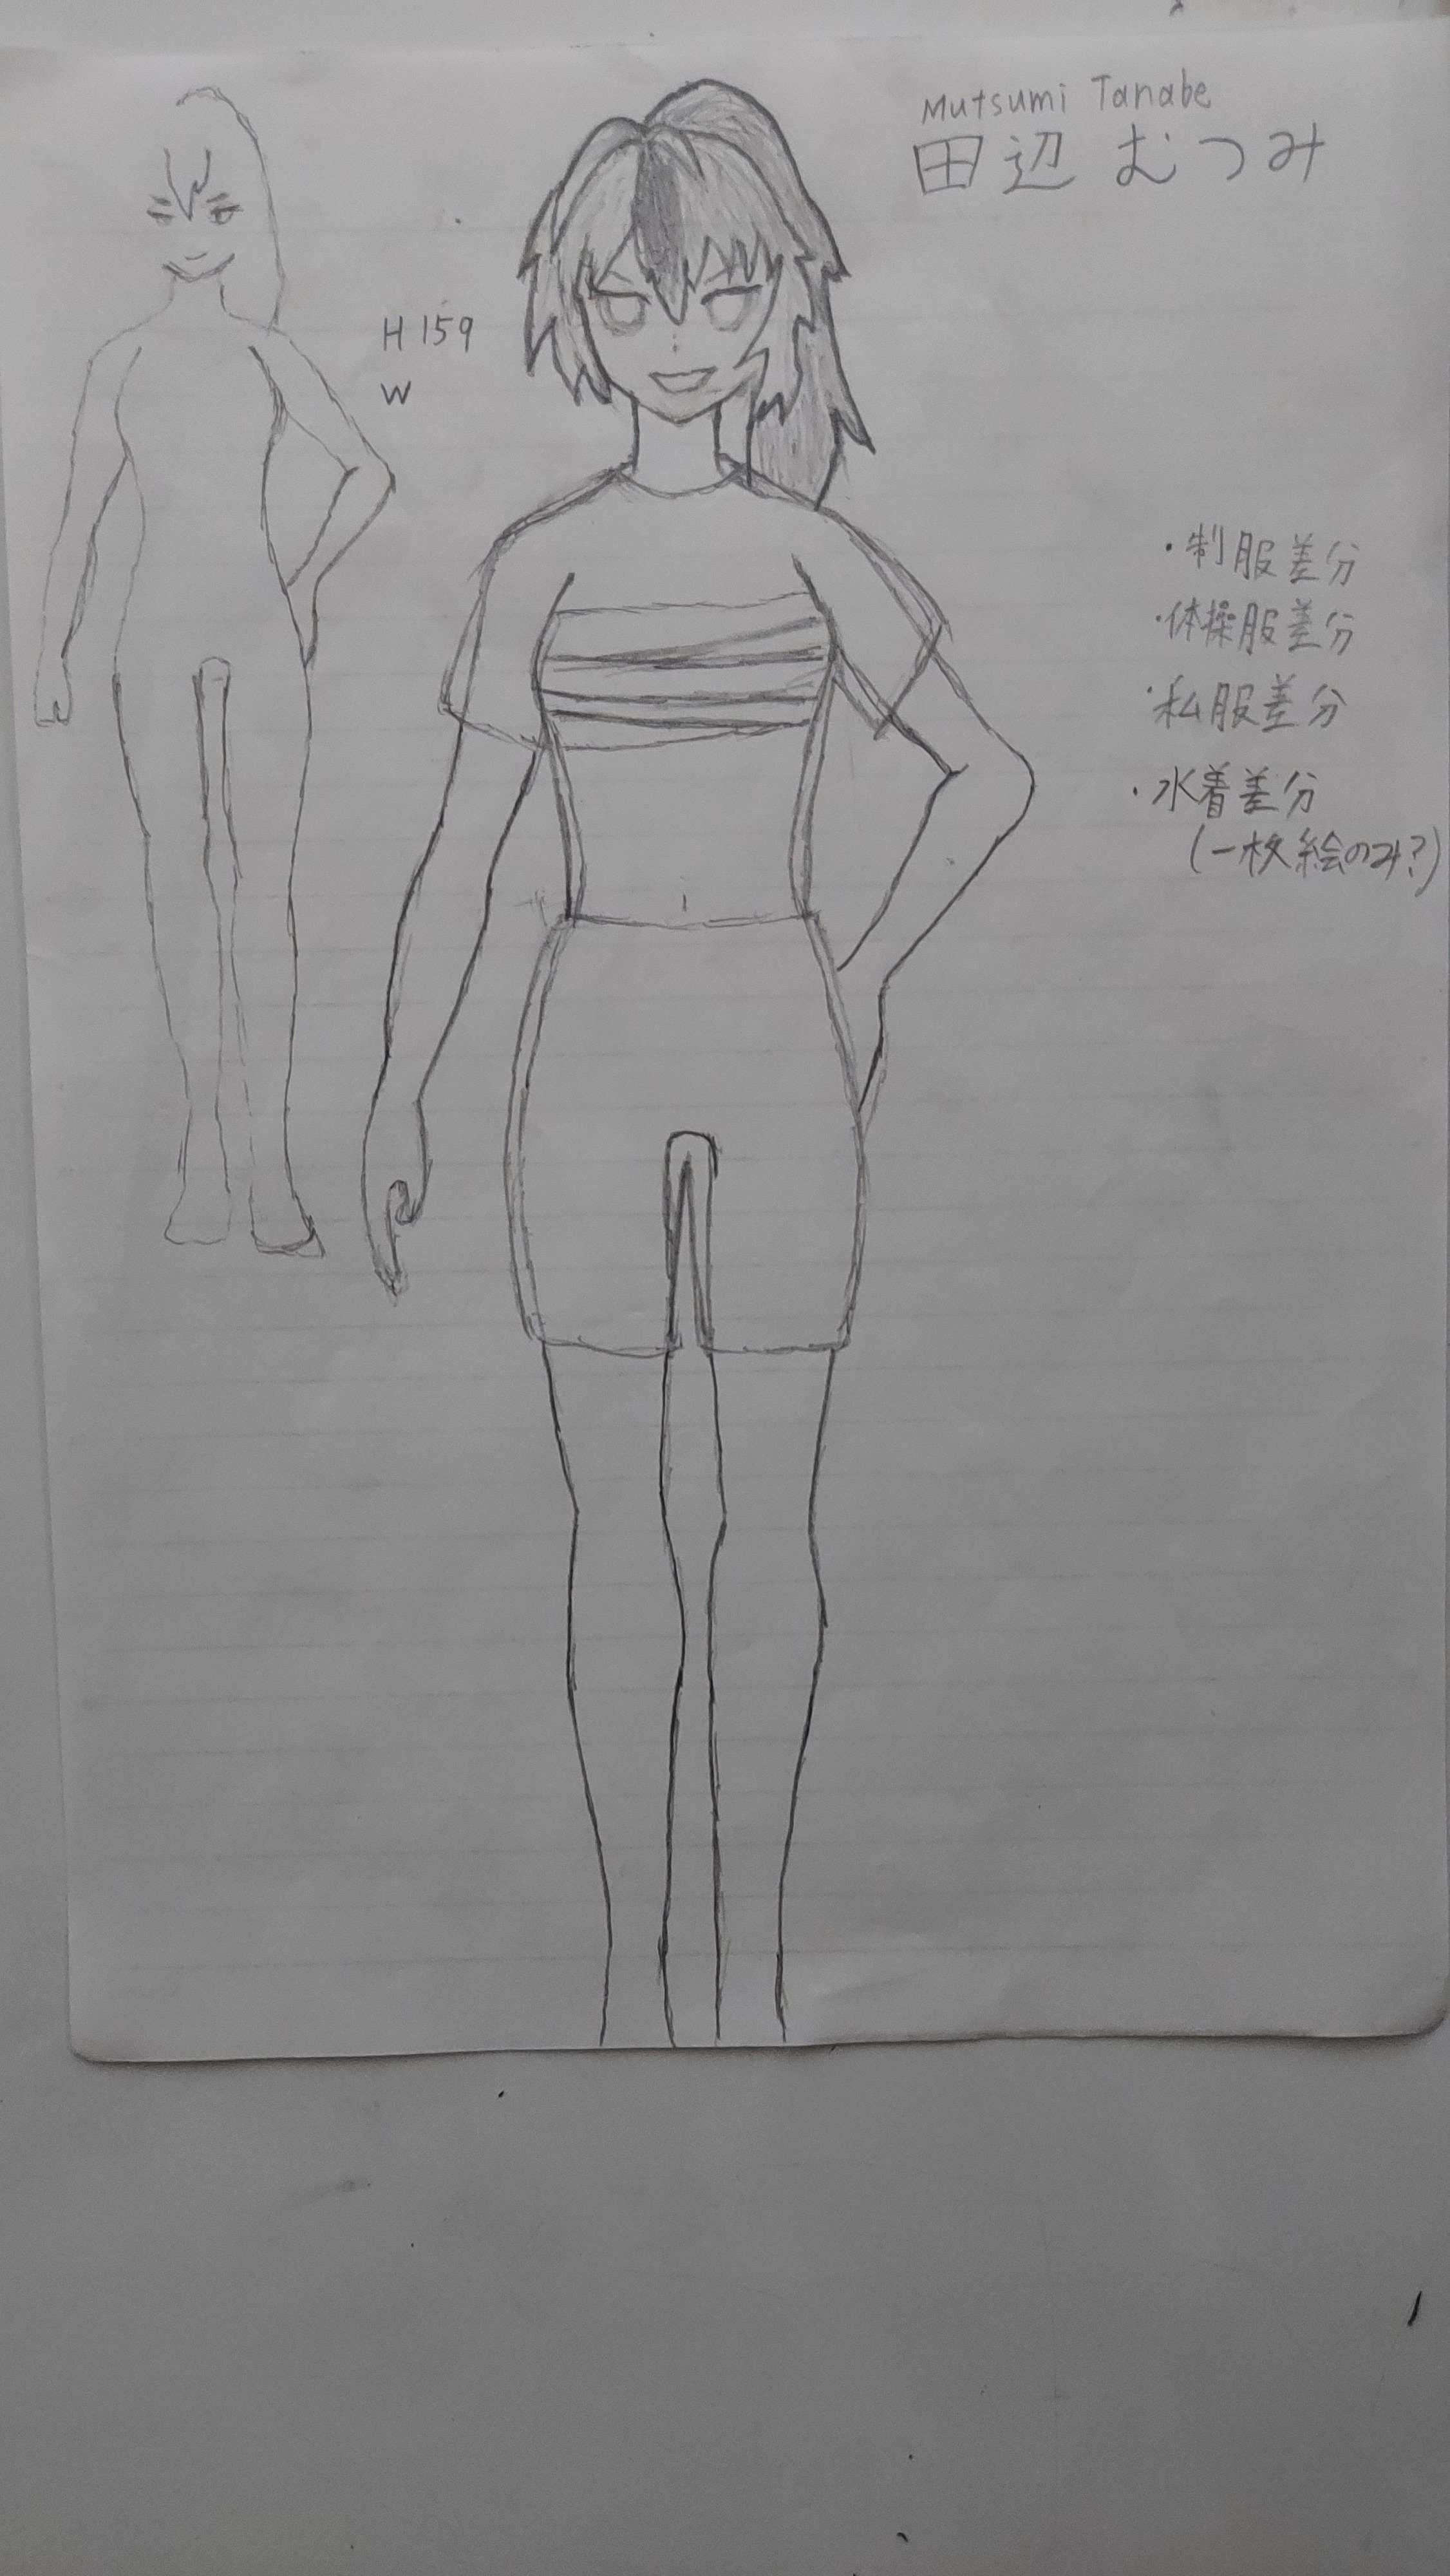 Mutsumi Tanabe
田辺 むつみ
H 159
W
・制服差分
・体操服差分
・私服差分
・水着差分
(一枚絵のみ?)